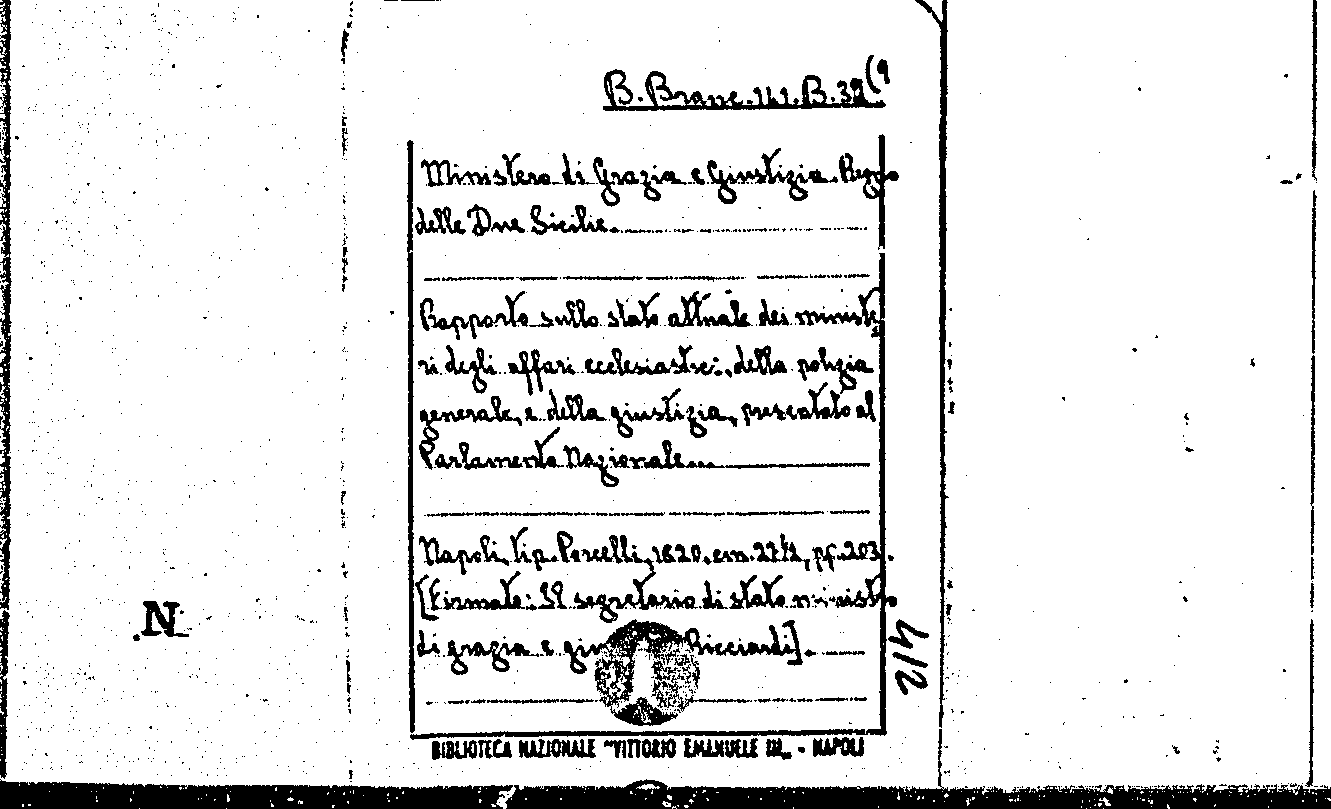 B. Branc. 141. B. 32(9
Ministero di Grazia e Giustizia. Regno
delle Due Sicilie.
Rapporto sullo stato attuale dei ministe-
ri degli affari ecclesiastici, della polizia
generale, e della giustizia, presentato al
Parlamento Nazionale...
Napoli, tip. Porcelli, 1820. cm. 27½, pp. 203.
[Firmato: Il segretario di stato ministro
di grazia e Ricciardi].
N
2/4
BIBLIOTECA NAZIONALE "VITTORIO EMANUELE III„ - NAPOLI